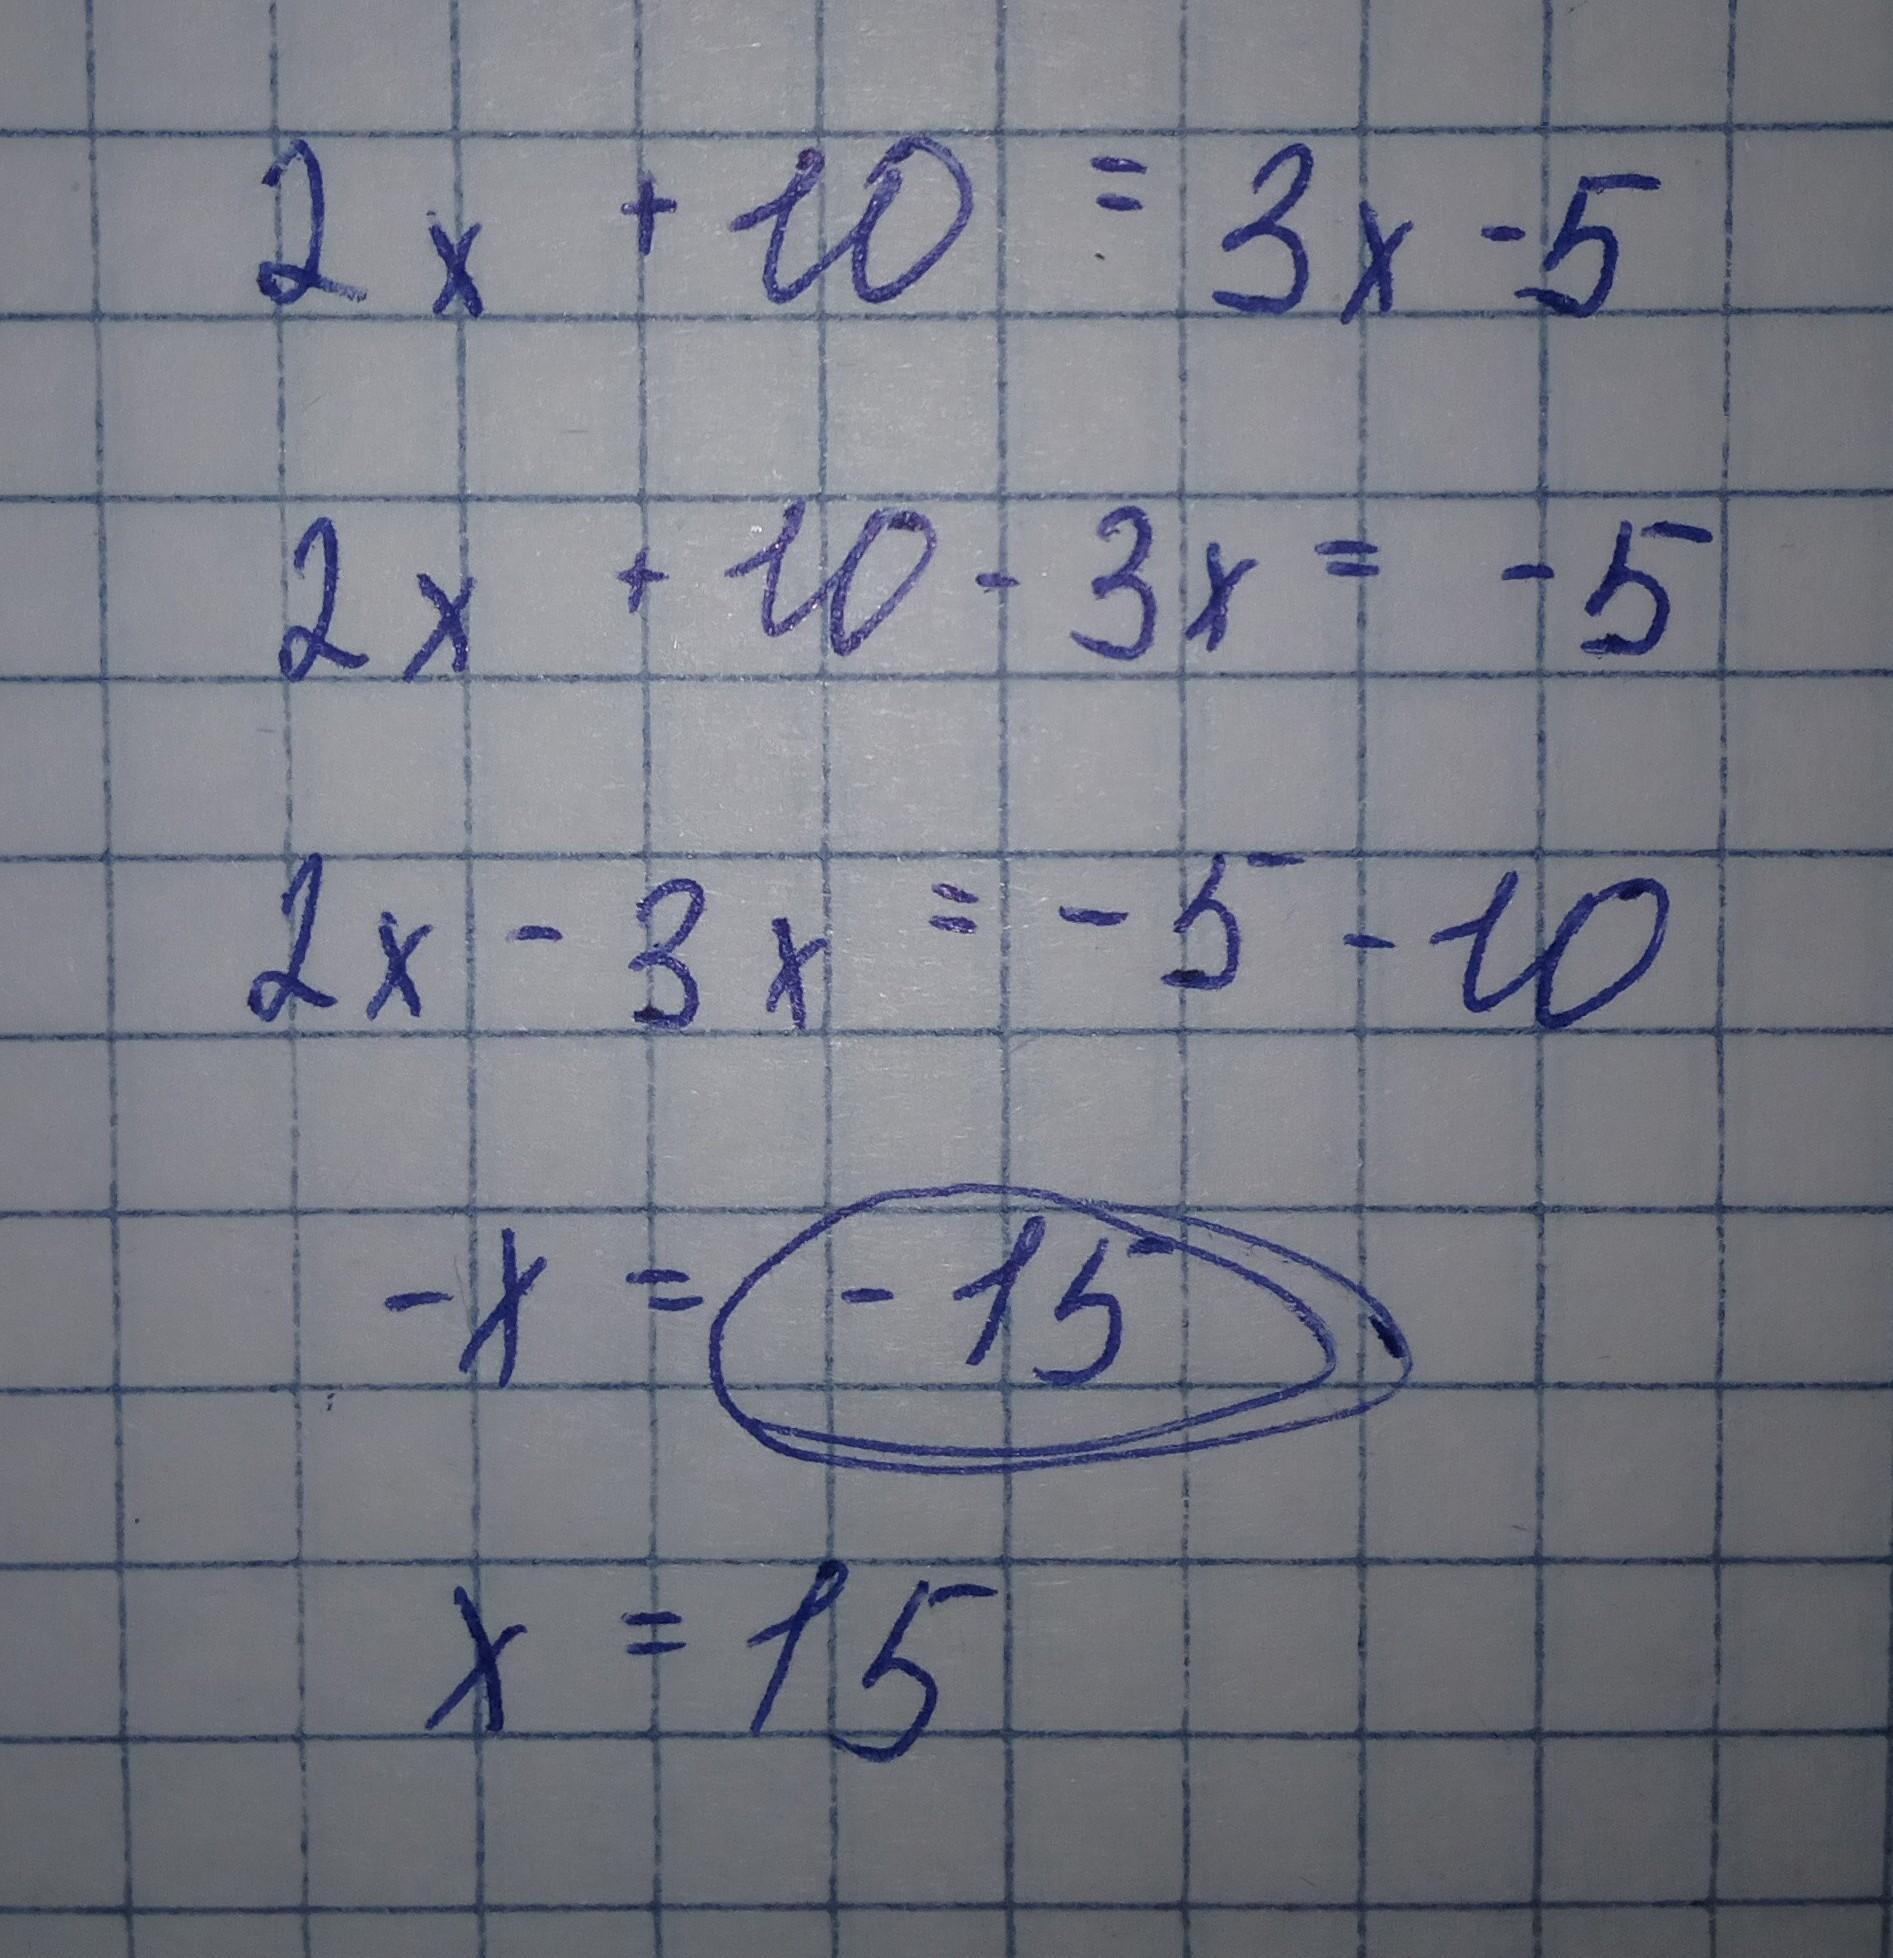 2x + 10 = 3x - 5
2x + 10 - 3x = - 5
2x - 3x = - 5 - 10
-x = - 15
x = 15